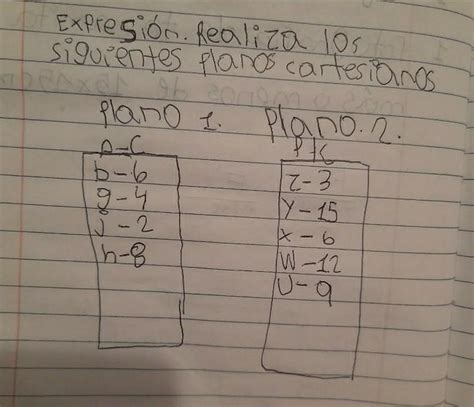 Expresión. Realiza los
siguientes planos cartesianos
Plano 1. Plano. 2.
A-C
b-6
g-4
j-2
h-8
P-K
z-3
Y-15
X-6
W-12
U-9